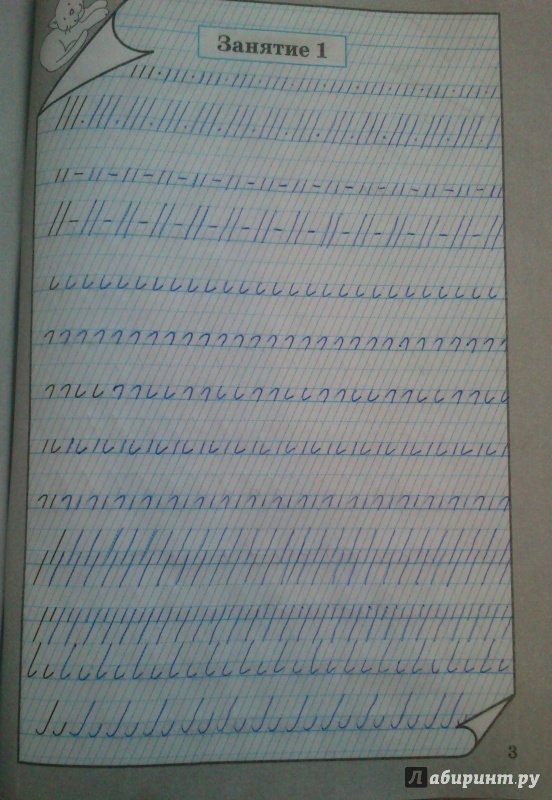 Занятие 1
3
Лабиринт.ру